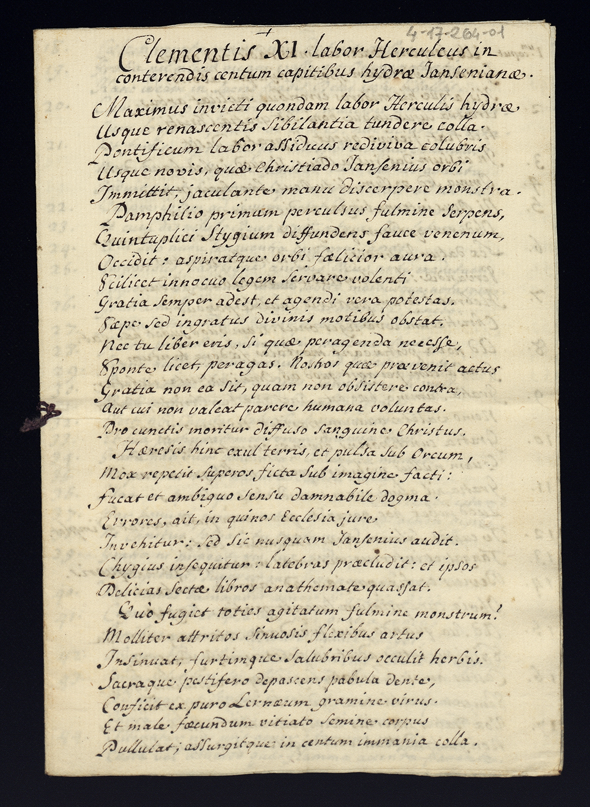 4-17-264-01
Clementis XI. labor Herculeus in
conterendis centum capitibus hydræ Jansenianæ.
Maximus invicti quondam labor Herculis hydræ
Usque renascentis Sibilantia tundere colla.
Pontificum labor assiduus rediviva colubris
Usque novis, quæ Christiado Jansenius orbi
Immittit, jaculante manu discerpere monstra.
Pamphilio primum perculsus fulmine Serpens,
Quintuplici Stygium diffundens fauce venenum,
Occidit: aspiratque orbi fælicior aura.
Scilicet innocuo legem servare volenti
Gratia semper adest, et agendi vera potestas.
Sæpe sed ingratus divinis motibus obstat.
Nec tu liber eris, si quæ peragenda necesse,
Sponte licet peragas. Nostros quæ prævenit actus
Gratia non ea sit, quam non obsistere contra,
Aut cui non valeat parere humana voluntas.
Pro cunctis moritur diffuso sanguine Christus.
Hæresis hinc exul terris, et pulsa sub Orcum,
Mox repetit superos ficta sub imagine facti:
Fucat et ambiguo sensu damnabile dogma.
Errores, ait, in quinos Ecclesia jure
Invehitur: sed sic nusquam Jansenius audit.
Chygius insequitur: latebras præcludit: et ipsos
Delicias Sectæ libros anathemate quassat.
Quò fugiet toties agitatum fulmine monstrum?
Molliter attritos sinuosis flexibus artus
Insinuat; furtimque salubribus occulit herbis.
Sacraque pestifero depascens pabula dente,
Conficit ex puro Lernæum gramine virus.
Et male fæcundum vitiato semine corpus
Pullulat; assurgitque in centum immania colla.